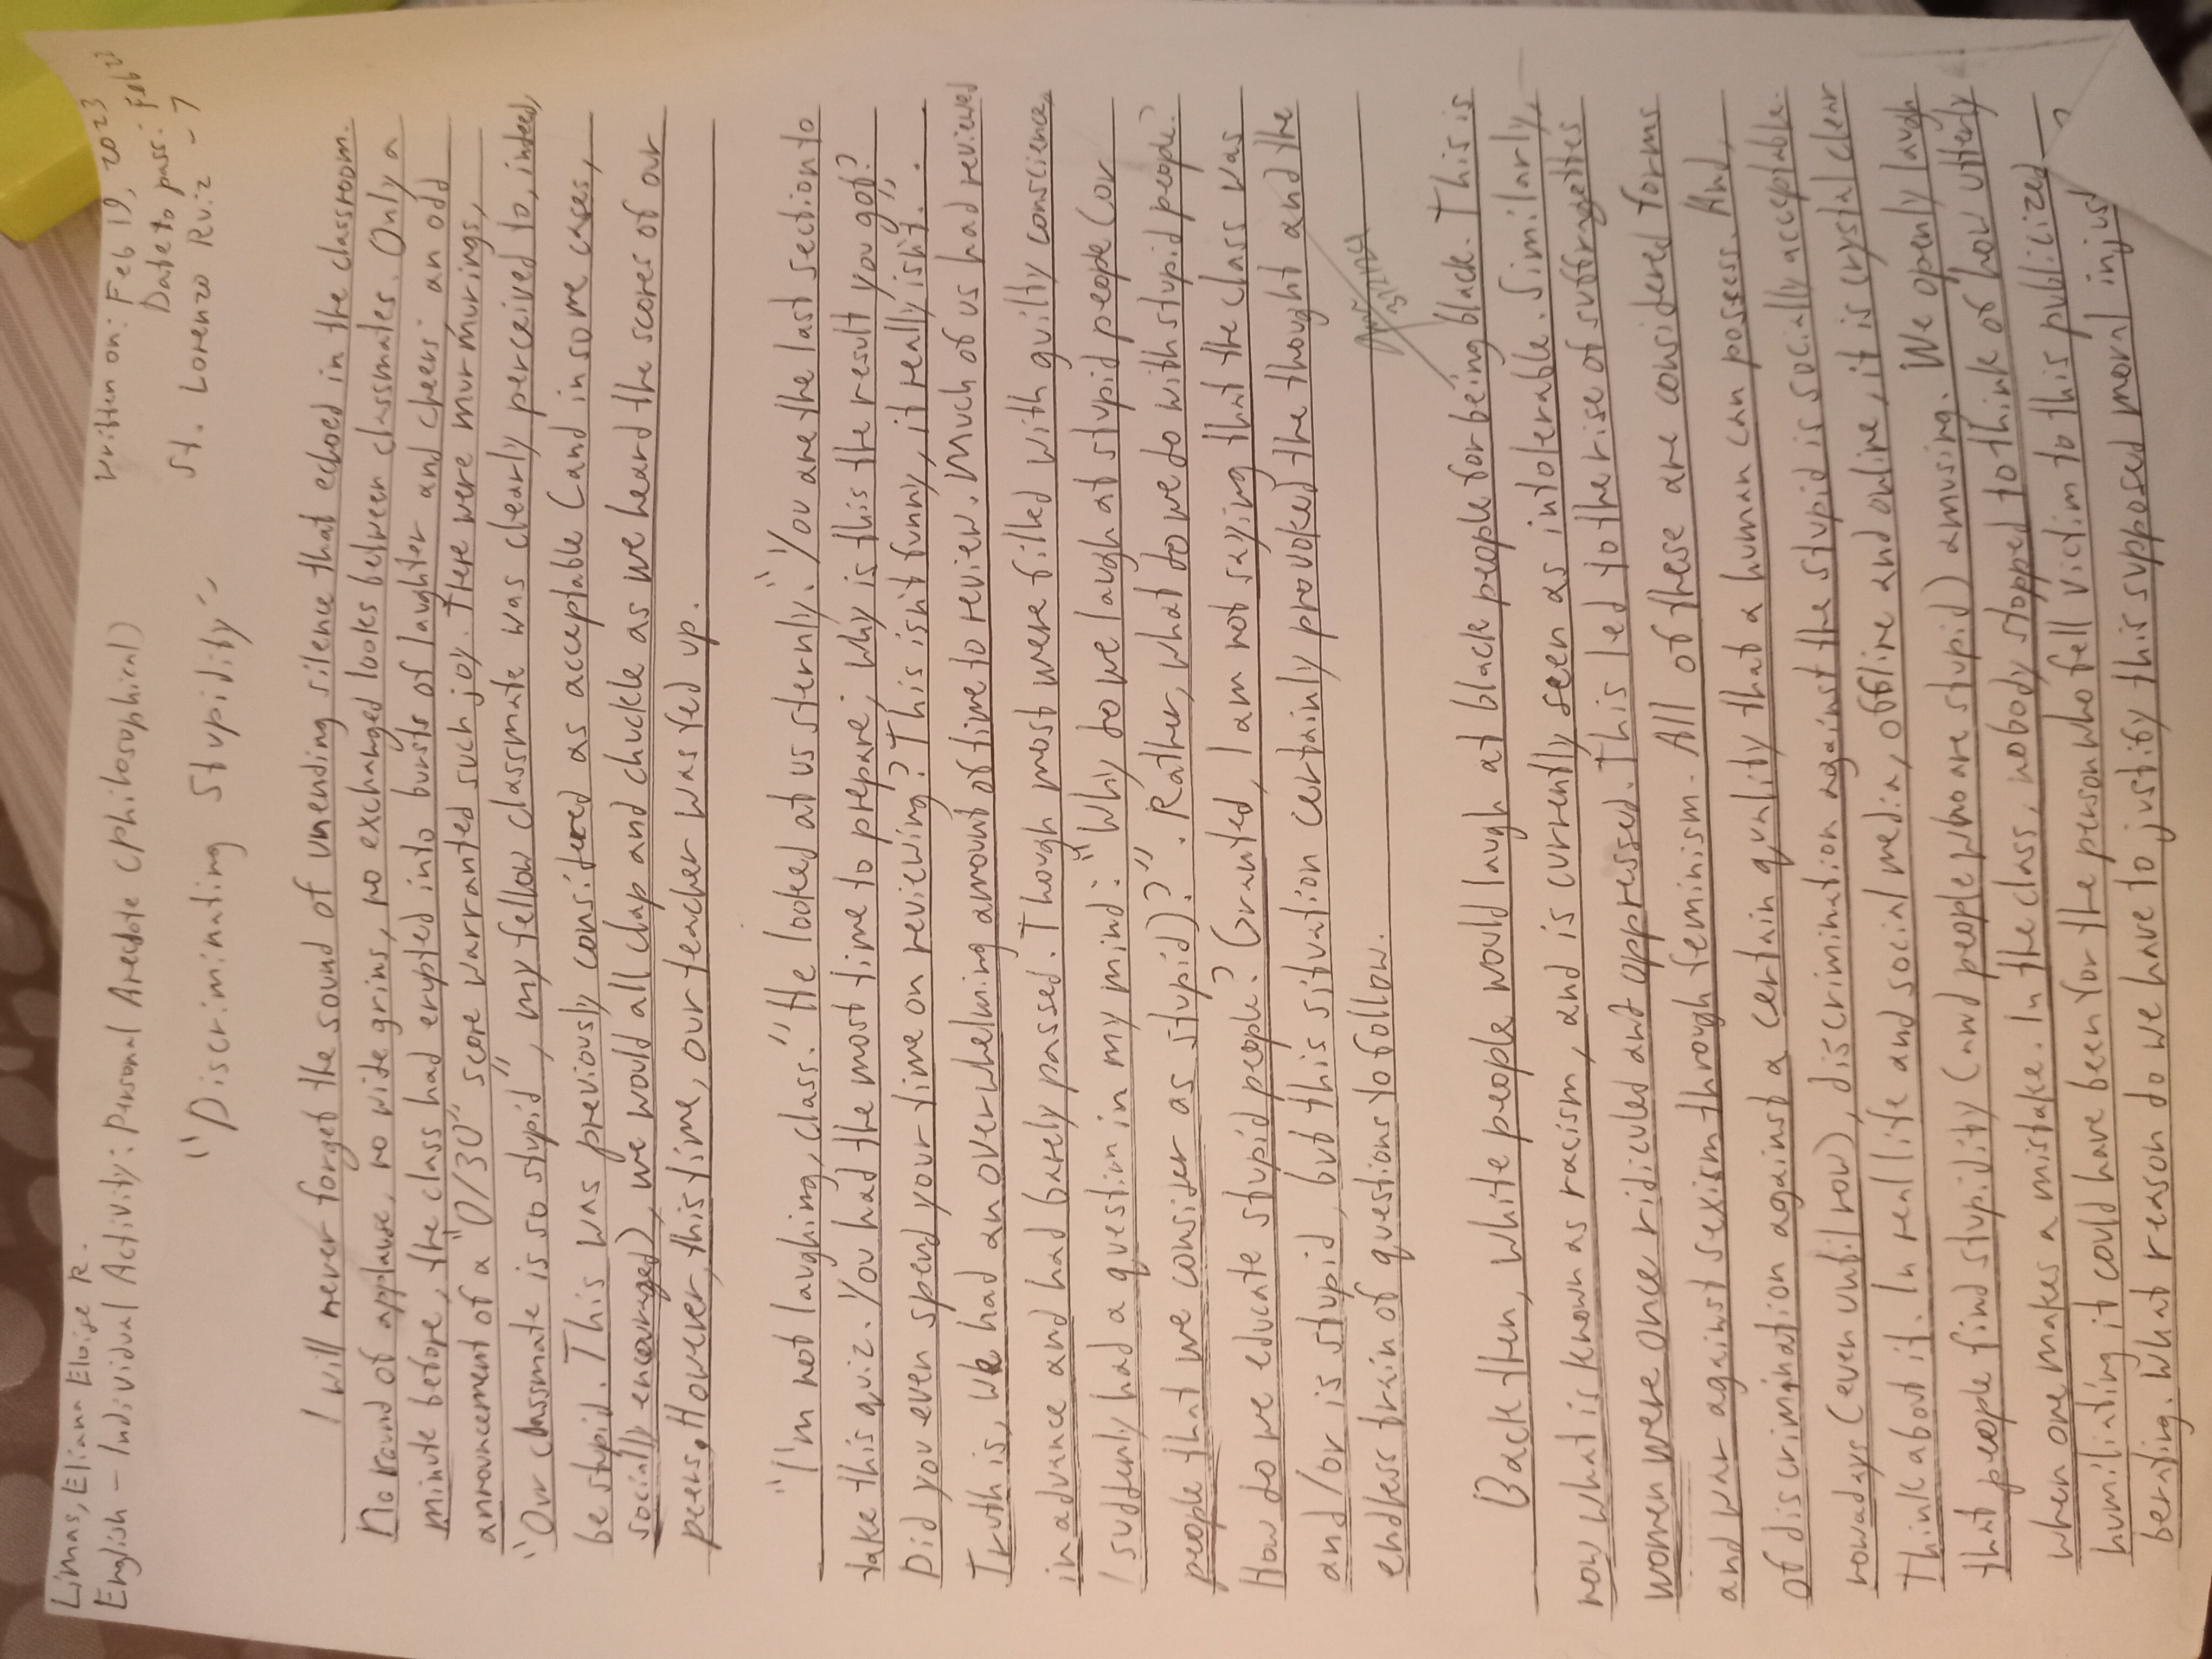 Limas, Eliana Eloise R.
Written on: Feb 19, 2023
English - Individual Activity: Personal Anecdote (Philosophical)
Date to pass: Feb 21
St. Lorenzo Ruiz - 7
"Discriminating Stupidity"
I will never forget the sound of unending silence that echoed in the classroom.
No round of applause, no wide grins, no exchanged looks between classmates. Only a
minute before, the class had erypted into bursts of laughter and cheers: an odd
announcement of a "0/30" score warranted such joy. There were murmurings,
"Our classmate is so stupid", my fellow classmate was clearly perceived to, indeed,
be stupid. This was previously considered as acceptable (and in some cases,
socially encouraged), we would all clap and chuckle as we heard the scores of our
peers. However, this time, our teacher was fed up.
"I'm not laughing, class." He looked at us sternly. "You are the last section to
take this quiz. You had the most time to prepare, why is this the result you got?
Did you even spend your time on reviewing? This isn't funny, it really isn't."
Truth is, we had an overwhelming amount of time to review. Much of us had reviewed
in advance and had barely passed. Though most were filled with guilty conscience,
I suddenly had a question in my mind: "Why do we laugh at stupid people (or
people that we consider as stupid)?". Rather, what do we do with stupid people?
How do we educate stupid people? Granted, I am not saying that the class was
and/or is stupid, but this situation certainly provoked the thought and the
endless train of questions to follow.
Back then, white people would laugh at black people for being black. This is
now what is known as racism, and is currently seen as intolerable. Similarly,
women were once ridiculed and oppressed. This led to the rise of suffragettes
and war against sexism through feminism. All of these are considered forms
of discrimination against a certain quality that a human can posess. And,
nowadays (even until now), discrimination against the stupid is socially acceptable.
Think about it. In real life and social media, offline and online, it is crystal clear
that people find stupidity (and people who are stupid) amusing. We openly laugh
when one makes a mistake. In the class, nobody stopped to think of how utterly
humiliating it could have been for the person who fell victim to this publicized
berating. What reason do we have to justify this supposed moral injust